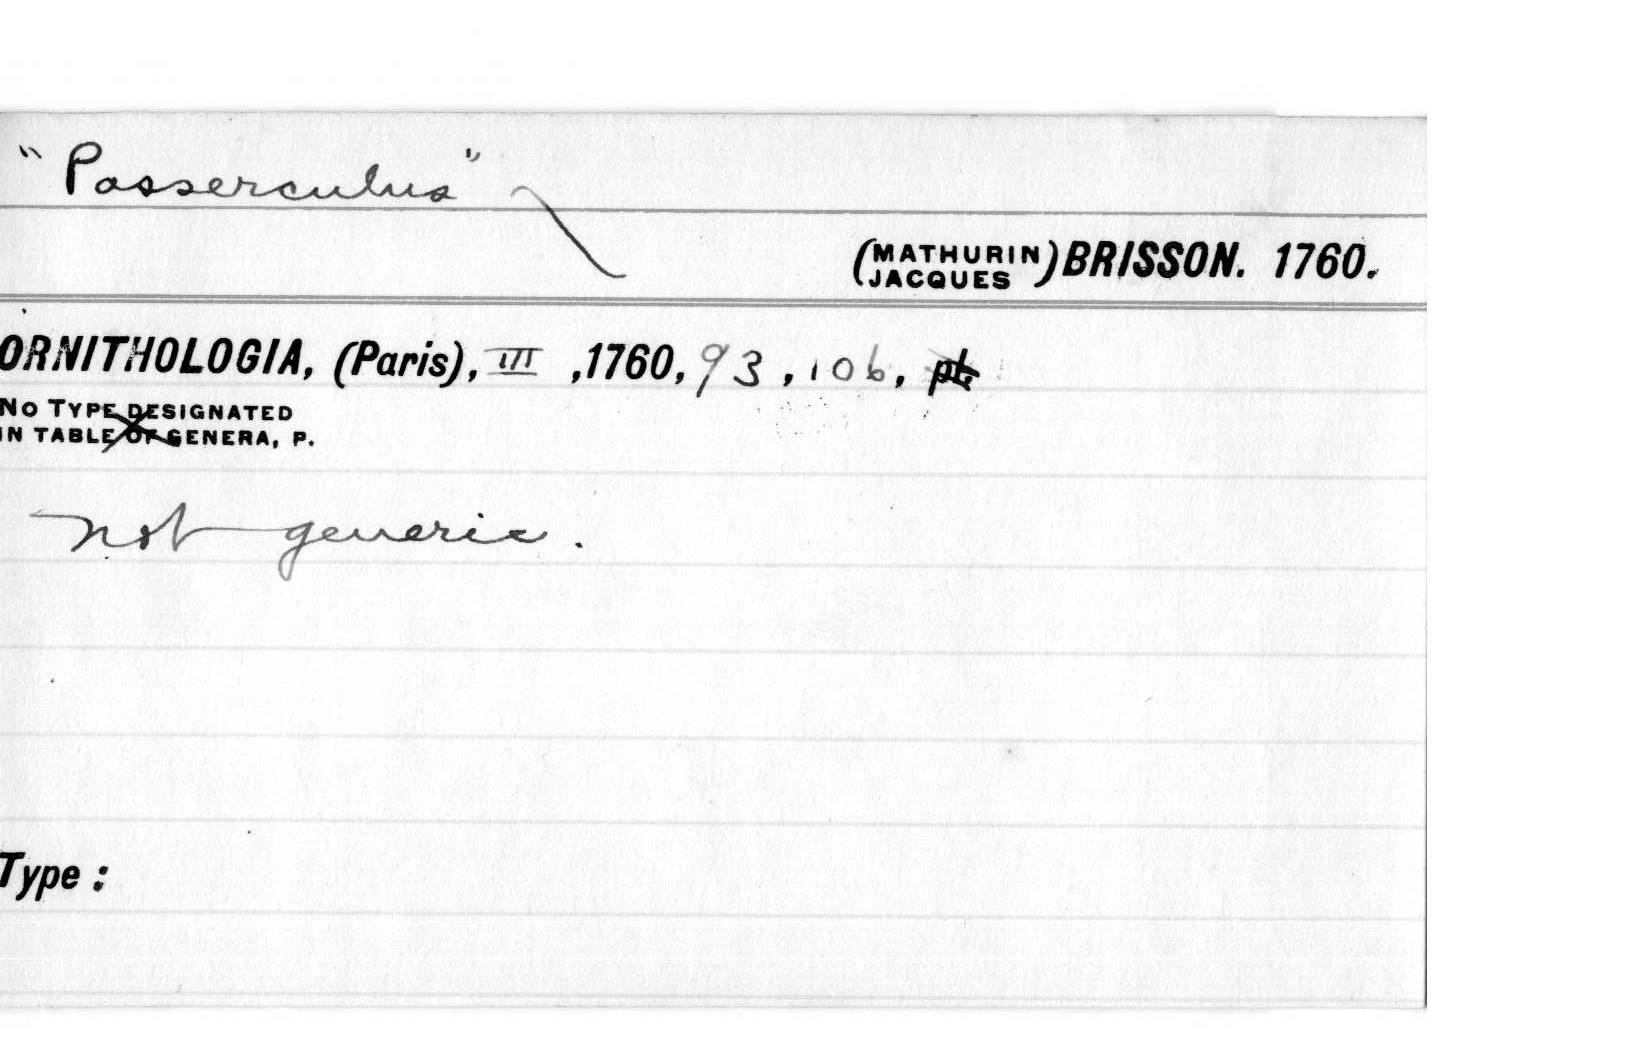 "Passerculus"
(MATHURIN JACQUES) BRISSON. 1760.
ORNITHOLOGIA, (Paris), III ,1760, 93 , 106, pt.
NO TYPE DESIGNATED
IN TABLE OF GENERA, P.
not generic.
Type :